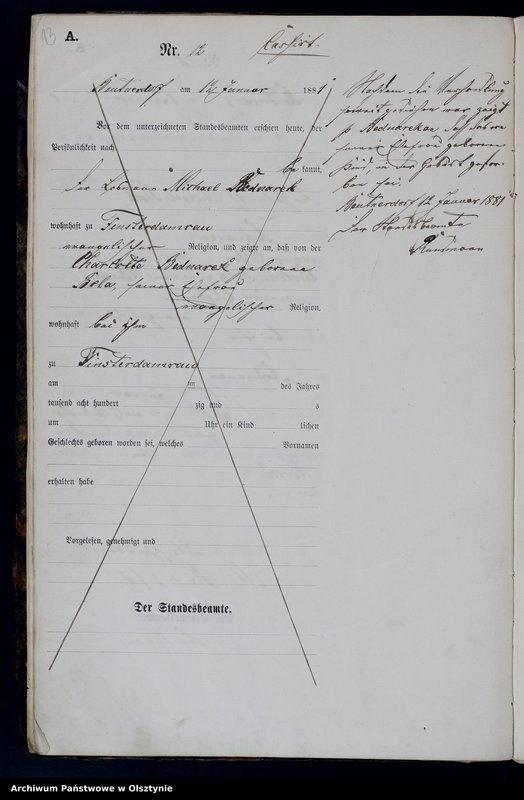 13
A.
Nr. 12
Cassirt.
am 12 Januar 1881
Vor dem unterzeichneten Standesbeamten erschien heute, der
Persönlichkeit nach
be kannt,
der Michael Bednarek
wohnhaft zu Finsterdamrau
evangelischer Religion, und zeigte an, daß von der
Charlotte Bednarek geborene
seiner Ehefrau
evangelischer Religion,
wohnhaft bei ihm
zu Finsterdamrau
am ten des Jahres
tausend acht hundert zig und s
um Uhr ein Kind lichen
Geschlechts geboren worden sei, welches Vornamen
erhalten habe
Vorgelesen, genehmigt und
Der Standesbeamte.
Nachdem die Verhandlung
soweit war, zeigt
p Bednarek an, daß das von
seiner Ehefrau geborene
Kind, in der Geburt gestor-
ben sei.
12 Januar 1881
Der Standesbeamte
Archiwum Państwowe w Olsztynie